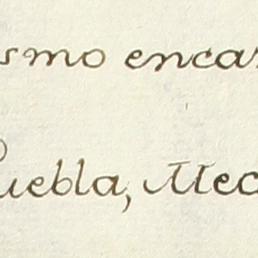 smo encar
Puebla, Mec